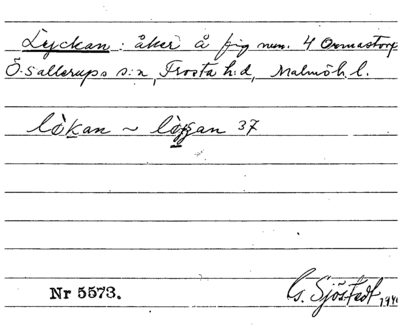 Lyckan : åker å fig num. 4 Ormastorp
Ö. Sallerups s:n, Frosta h:d, Malmöh. l.
lo̊kan ~ lo̊ggan 37
Nr 5573.
G. Sjöstedt 1940